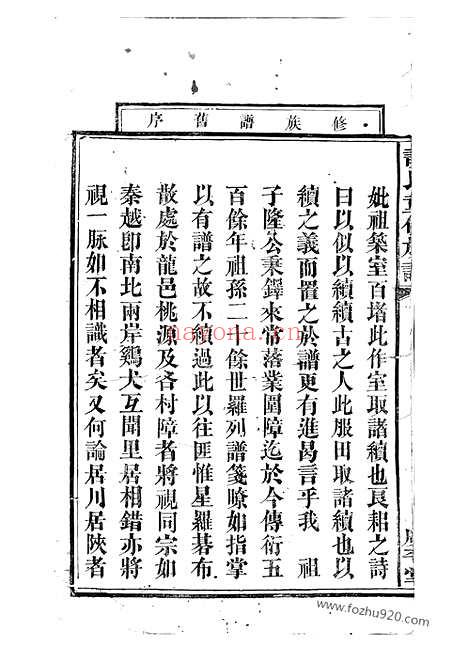 修族譜舊序
妣祖築室百堵此作室取諸續也良耜之詩
曰以似以續續古之人此服田取諸續也以
續之義而置之於譜更有逛曷言乎我　祖
子隆公秉鐸來常落業圍障迄於今傳衍五
百餘年祖孫二十餘世羅列譜箋瞭如指掌
以有譜之故不續過此以往匪惟星羅碁布
散處於龍邑桃源及各村障者將視同宗如
秦越即南北兩岸鷄犬互聞里居相錯亦將
視一脉如不相識者矣又何論居川居陝者
nayona.cn
www.fozhu920.com